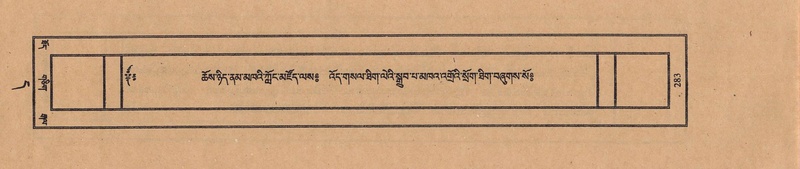 ཆོས་ཉིད་ནམ་མཁའི་ཀློང་མཛོད་ལས༔ འོད་གསལ་ཐིག་ལེའི་སྒྲུབ་པ་མཁའ་འགྲོའི་སྲོག་ཐིག་བཞུགས་སོ༔
283